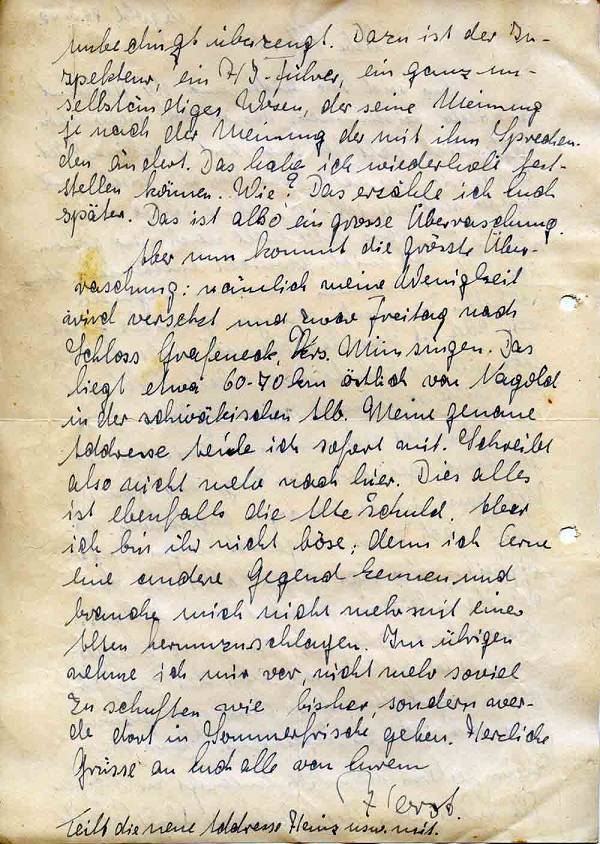 unbedingt überzeugt. Dazu ist der In-
spekteur, ein HJ-Führer, ein ganz un-
selbständiges Wesen, der seine Meinung
je nach der Meinung der mit ihm Sprechen-
den ändert. Das habe ich wiederholt fest-
stellen können. Wie? Das erzähle ich Euch
später. Das ist also ein grosse Überraschung.
Aber nun kommt die grösste Über-
raschung: nämlich meine Wenigkeit
wird versetzt und zwar Freitag nach
Schloss Grafeneck, Krs. Münsingen. Das
liegt etwa 60-70 km östlich von Nagold
in der schwäbischen Alb. Meine genaue
Addresse teile ich sofort mit. Schreibt
also nicht mehr nach hier. Dies alles
ist ebenfalls die Alte Schuld. Aber
ich bin ihr nicht böse; denn ich lerne
eine andere Gegend kennen und
brauche mich nicht mehr mit einer
Alten herumzuschlagen. Im übrigen
nehme ich mir vor, nicht mehr soviel
zu schuften wie bisher, sondern wer-
de dort in Sommerfrische gehen. Herzliche
Grüsse an Euch alle von Eurem
Horst.
Teilt die neue Addresse Heinz usw. mit.